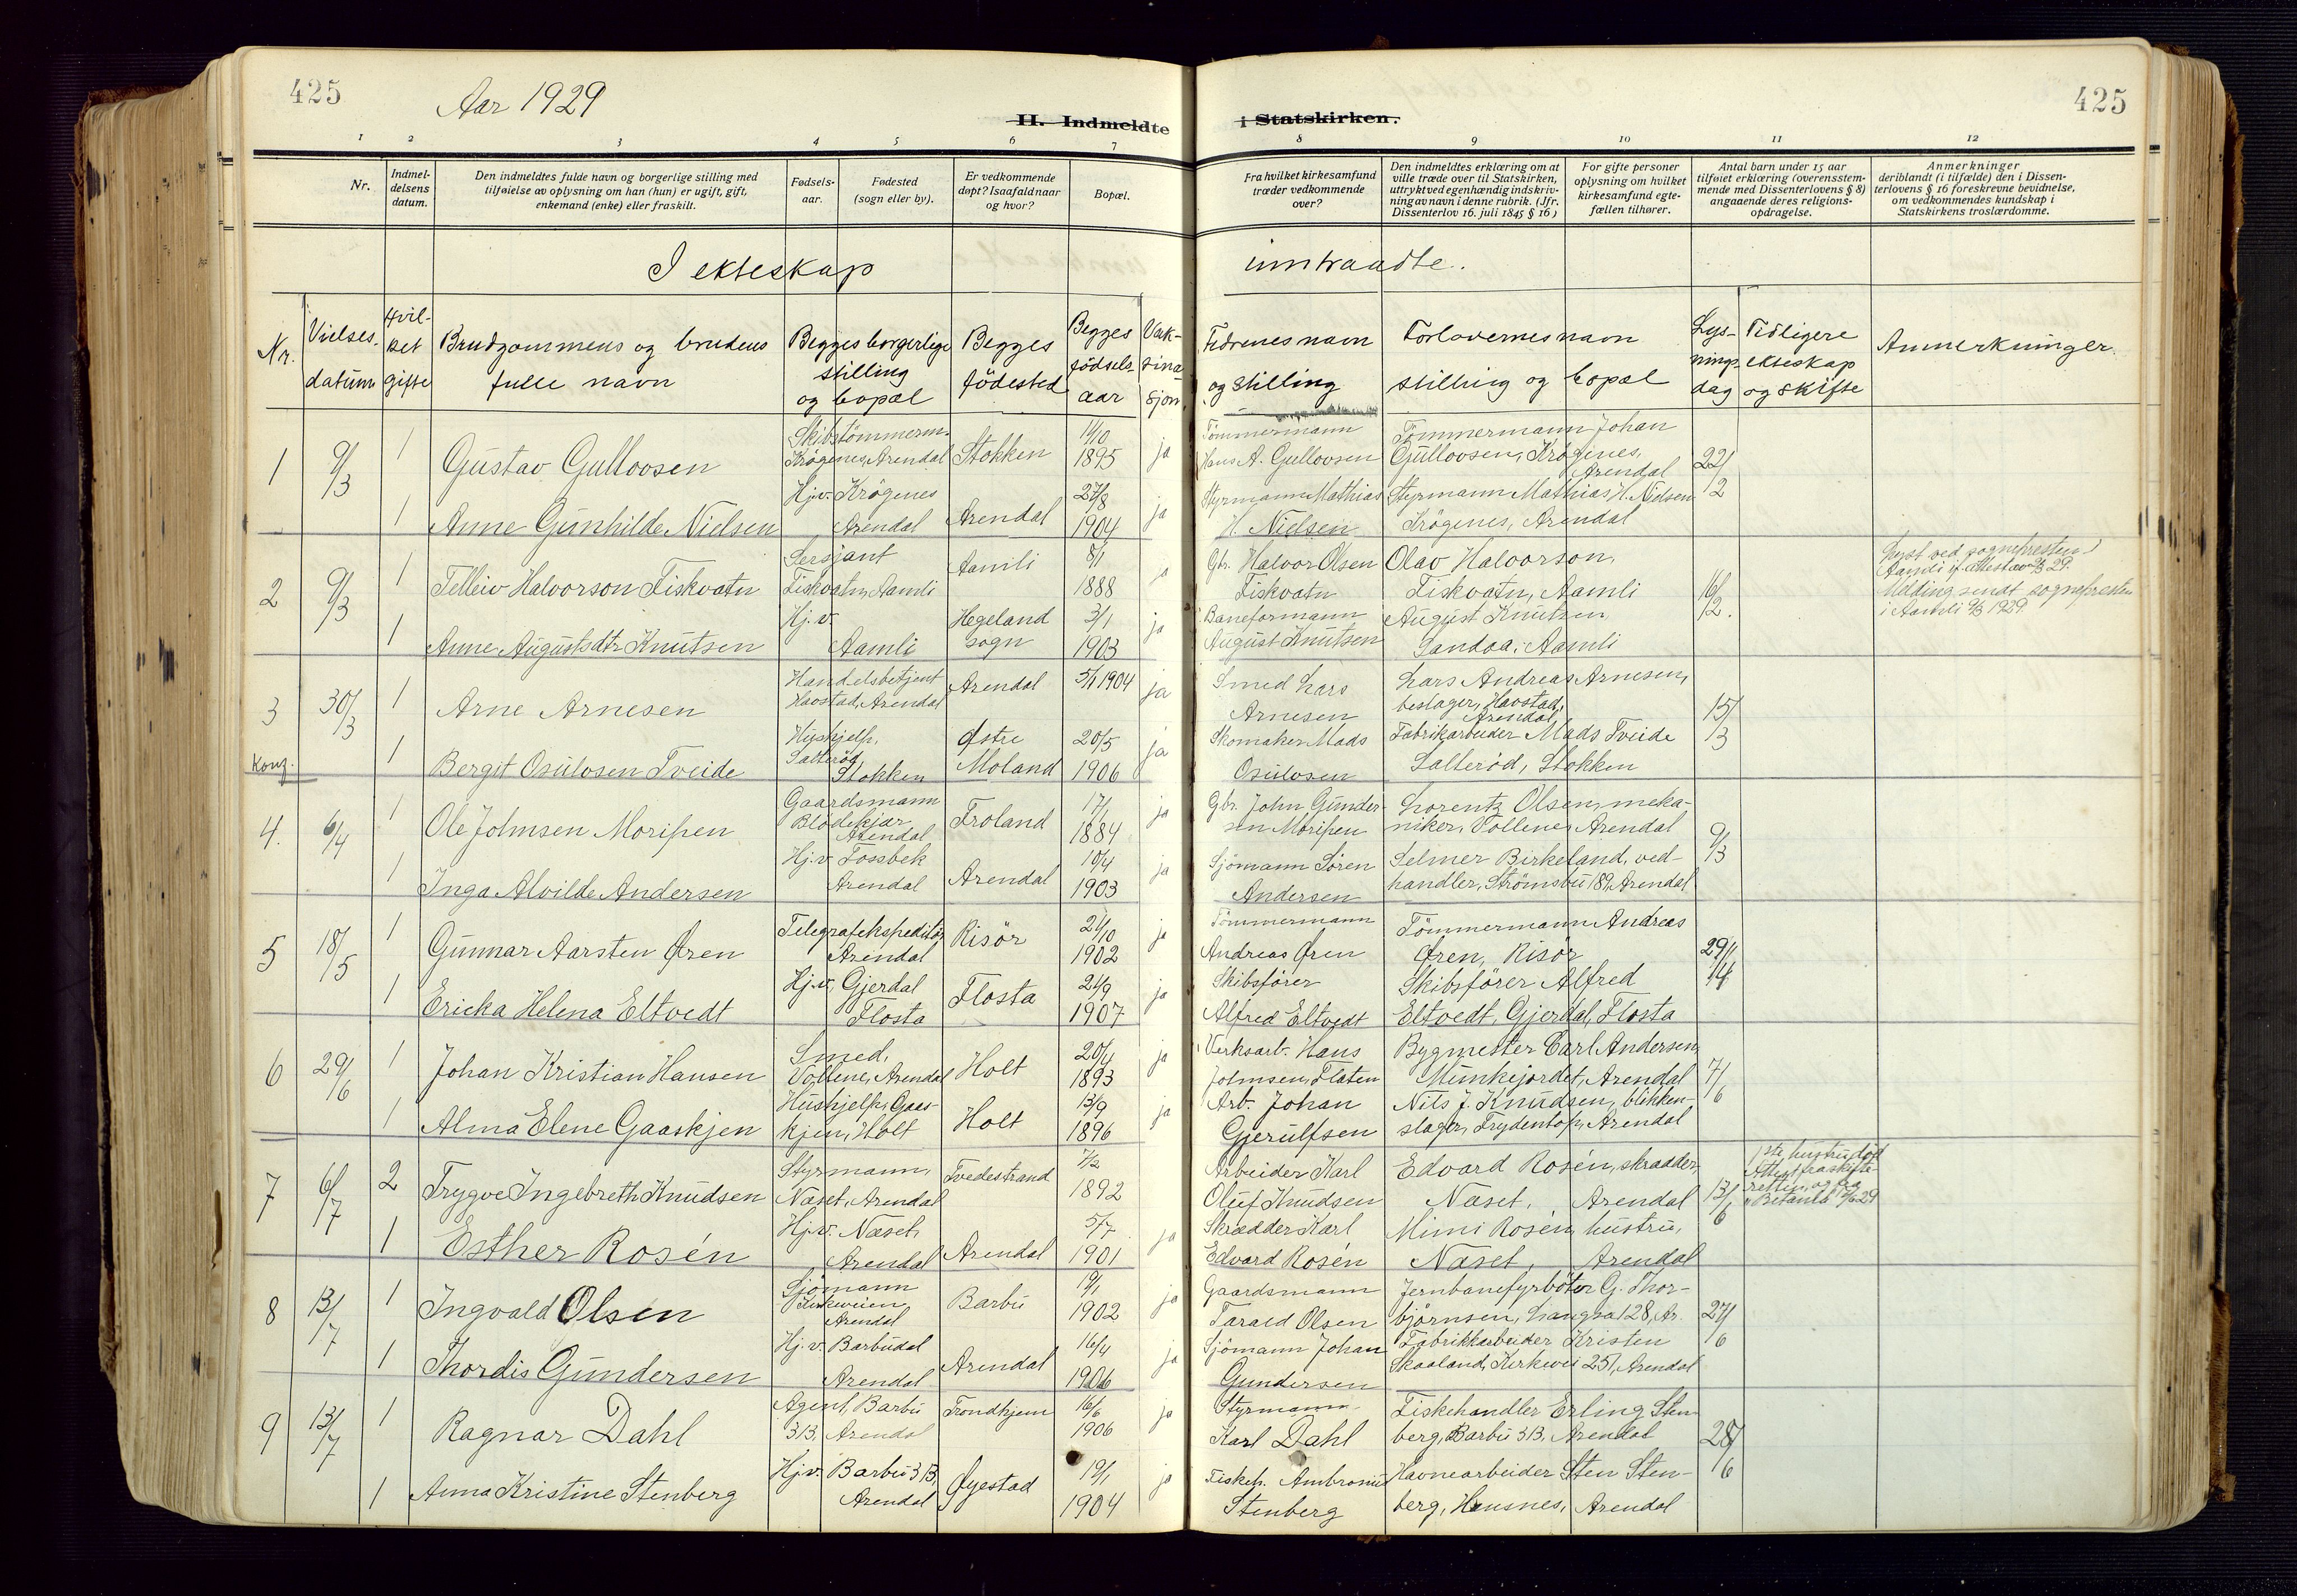 425
Aar 1929
II. Indmeldte
i Statskirken.
425
1 2 3 4 5 6 7 8 9 10 11 12
Nr.
Indmel-
delsens
datum.
Den indmeldtes fulde navn og borgerlige stilling med
tilføielse av oplysning om han (hun) er ugift, gift,
enkemand (enke) eller fraskilt.
Fødsels-
aar.
Fødested
(sogn eller by).
Er vedkommende
døpt? Isaafald naar
og hvor?
Bopæl.
Fra hvilket kirkesamfund
træder vedkommende
over?
Den indmeldtes erklæring om at
ville træde over til Statskirken,
uttrykt ved egenhændig indskriv-
ning av navn i denne rubrik. (Jfr.
Dissenterlov 16. juli 1845 § 16)
For gifte personer
oplysning om hvilket
kirkesamfund egte-
fællen tilhører.
Antal barn under 15 aar
tilføiet erklæring (overensstem-
mende med Dissenterlovens § 8)
angaaende deres religions-
opdragelse.
Anmerkninger
deriblandt (i tilfælde) den i Dissen-
terlovens § 16 foreskrevne bevidnelse,
om vedkommendes kundskap i
Statskirkens troslærdomme.
I ekteskap inntraadte.
Nr.
Vielses-
datum
Hvil-
ket
gifte
Brudgommens og brudens
fulle navn
Begges borgerlige
stilling
og bopæl
Begges
födested
Begges
födsels-
aar
Vak-
sina-
sjon
Fedrenes navn
og stilling
Forlovernes navn
stilling og bopæl
Lys-
nings-
dag
Tidligere
ekteskap
og skifte
Anmerkninger.
1 9/3 1 Gustav Gulloosen
Skibstömmerm.
Krögenes, Arendal
Stokken
14/10
1895
ja
Tömmermann
Hans A. Gulloosen
Tömmermann Johan
Gulloosen, Krögenes,
Arendal
22/2
1 Anne Gunhilde Nielsen
Hj.v. Krögenes
Arendal
Arendal
27/8
1904
ja
Styrmann Mathias
H. Nielsen
Styrmann Mathias H. Nielsen
Krögenes, Arendal
2 9/3 1 Telleiv Halvorson Fiskvatn
Sersjant
Fiskvatn, Aamli
Aamli
8/1
1888
ja
Gbr. Halvor Olsen
Fiskvatn
Olav Halvorson,
Fiskvatn, Aamli
16/2.
Lyst ved sognepresten i
Aamli if. attest av 2/3 29.
Melding sendt sognepresten
i Aamli 9/3 1929
1 Anne Augustsdtr Knutsen
Hj.v.
Aamli
Hegeland
sogn
3/1
1903
ja
Baneformann
August Knutsen
August Knutsen,
Sandoa i Aamli
3 30/3 1 Arne Arnesen
Handelsbetjent
Havstad, Arendal
Arendal
5/1 1904
ja
Smed Lars
Arnesen
Lars Andreas Arnesen,
beslager, Havstad,
Arendal
15/3
Konf.
1 Bergit Osulosen Tveide
Hushjelp,
Salteröd,
Stokken
Østre
Moland
20/5
1906
ja
Skomaker Mads
Osulosen
Fabrikarbeider Mads Tveide
Salteröd, Stokken
4. 6/4 1 Ole Johnsen Moripen
Gaardsmann
Blödekjær
Arendal
Froland
17/1
1884
ja
Gbr. John Gunder-
sen Moripen
Lorentz Olsen, meka-
niker, Vollene, Arendal
9/3
1 Inga Alvilde Andersen
Hj.v. Fossbek
Arendal
Arendal
10/4
1903
ja
Sjömann Sören
Andersen
Selmer Birkeland, ved-
handler, Strömsbu 189, Arendal
5 18/5 1 Gunnar Aarsten Øren
Telegrafekspeditör
Arendal
Risör
21/10
1902
ja
Tömmermann
Andreas Øren
Tömmermann Andreas
Øren, Risör
29/4
1 Ericka Helena Eltvedt
Hj.v. Gjerdal
Flosta
Flosta
21/9
1907
ja
Skibsförer
Alfred Eltvedt
Skibsförer Alfred
Eltvedt, Gjerdal, Flosta
6 29/6 1 Johan Kristian Hansen
Smed,
Vollene, Arendal
Holt
20/4
1893
ja
Verksarb. Hans
Johnsen, Flaten
Bygmester Carl Andersen,
Munkejordet, Arendal
7/6
1 Alma Elene Gaaskjen
Hushjelp, Gaas-
kjen, Holt
Holt
13/9
1896
ja
Arb. Johan
Gjerulfsen
Nils J. Knudsen, blikken-
slager, Frydentop, Arendal
7 6/7 2 Trygve Ingebreth Knudsen
Styrmann,
Næset, Arendal
Tvedestrand
7/2
1892
Arbeider Karl
Oluf Knudsen
Edvard Rosén, skrædder,
Næset, Arendal
13/6
1ste hustru död
Attest fra skifte-
retten, og fra
"Betania"
1 Esther Rosén
Hj.v. Næset,
Arendal
Arendal
5/7
1901
ja
Skrædder Karl
Edvard Rosén
Mimi Rosén, hustru,
Næset, Arendal
8 13/7 1 Ingvald Olsen
Sjömann
Kirkeveien,
Arendal
Barbu
19/1
1902
ja
Gaardsmann
Tarald Olsen
Jernbanefyrböter G. Thor-
björnsen, Langsæ 128, Ar.
27/6
1 Thordis Gundersen
Hj.v. Barbudal
Arendal
Arendal
16/4
1906
ja
Sjömann Johan
Gundersen
Fabrikkarbeider Kristen
Skaaland, Kirkevei 251, Arendal
9 13/7 1 Ragnar Dahl
Agent, Barbu
313, Arendal
Trondhjem
16/6
1906
ja
Styrmann
Karl Dahl
Fiskehandler Erling Sten-
berg, Barbu 313, Arendal
28/6
1 Anna Kristine Stenberg
Hj.v. Barbu 313
Arendal
Øyestad
19/1
1904
ja
Fiskeh. Ambrosius
Stenberg
Havnearbeider Sten Sten-
berg, Hausnes, Arendal